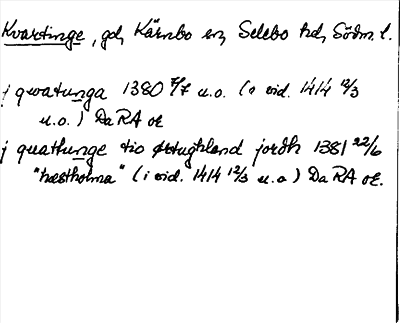 Kvartinge, gd, Kärnbo sn, Selebo hd, Södm. l.
j qwatunga 1380 7/7 u.o. (i vid. 1414 12/3
u.o.) Da RA oE
j quattunge tio ørtughland jordh 1381 22/6
"hæstholma" (i vid. 1414 12/3 u.o.) Da RA oE.